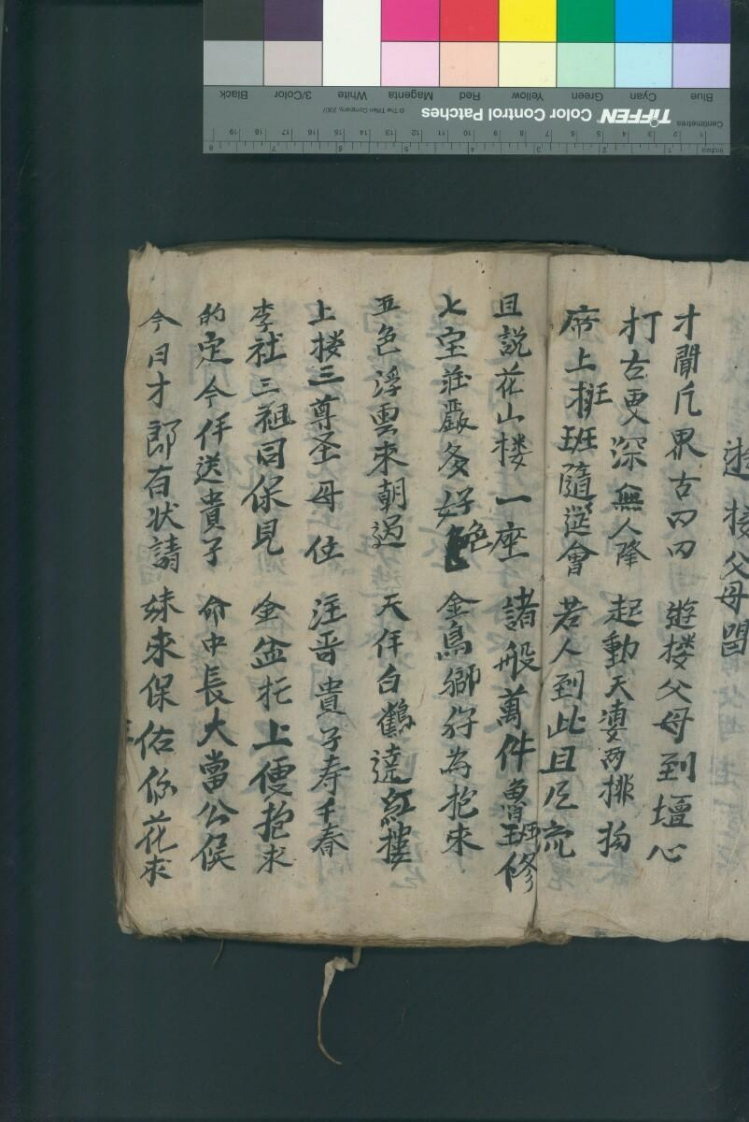 Blue Cyan Green Yellow Red Magenta White 3/Color Black
TIFFEN Color Control Patches © The Tiffen Company, 2007
Centimetres
Inches
遊接父母唱
才聞凡界古叩叩 遊搂父母到壇心
打古更深無人降 起動天凄两排扬
席上排班隨選會 若人到此且凡流
且説花山楼一座 諸般萬件魯班修
七宝莊嚴多好艳 金鳥御符為抱來
五色浮雲來朝過 天仟白鶴遶紅摟
上搂三尊圣母仕 注晋貴子寿千春
李社三祖同保見 金盆托上便抱求
的定今仟送貴子 命中長大當公侯
今日才郎有状請 妹來保佑你花求